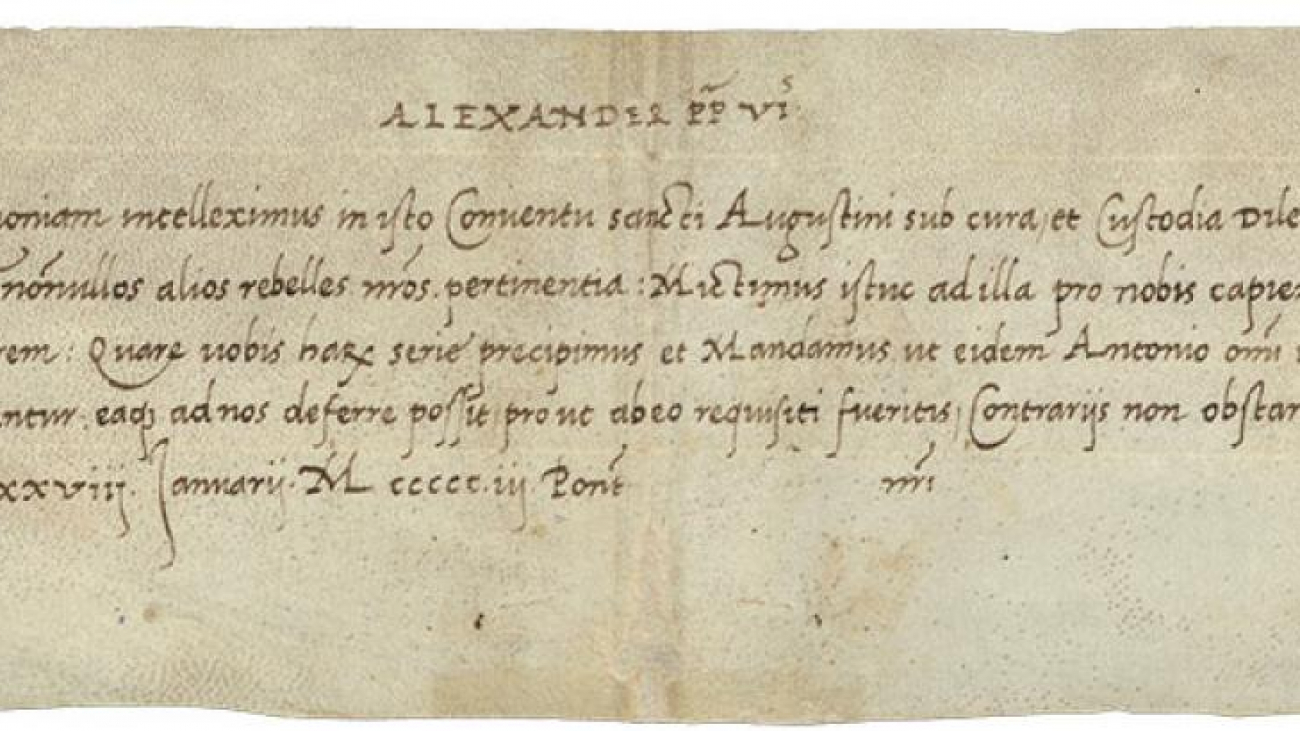 ALEXANDER P̃P VIˢ
oniam intelleximus in isto Conventu sancti Augustini sub cura, et Custodia Dile
nōnullos alios rebelles nr̄os. pertinentia : Mictimus istuc ad illa pro nobis capie
rem : Quare vobis harꝝ serie precipimus et Mandamus ut eidem Antonio om̄i
ntur. eaqꝫ ad nos deferre possit, prout ab eo requisiti fueritis, Contrarijs non obstan
xxviij. Januarij. M ccccc.iij. Pont̄ nr̄i